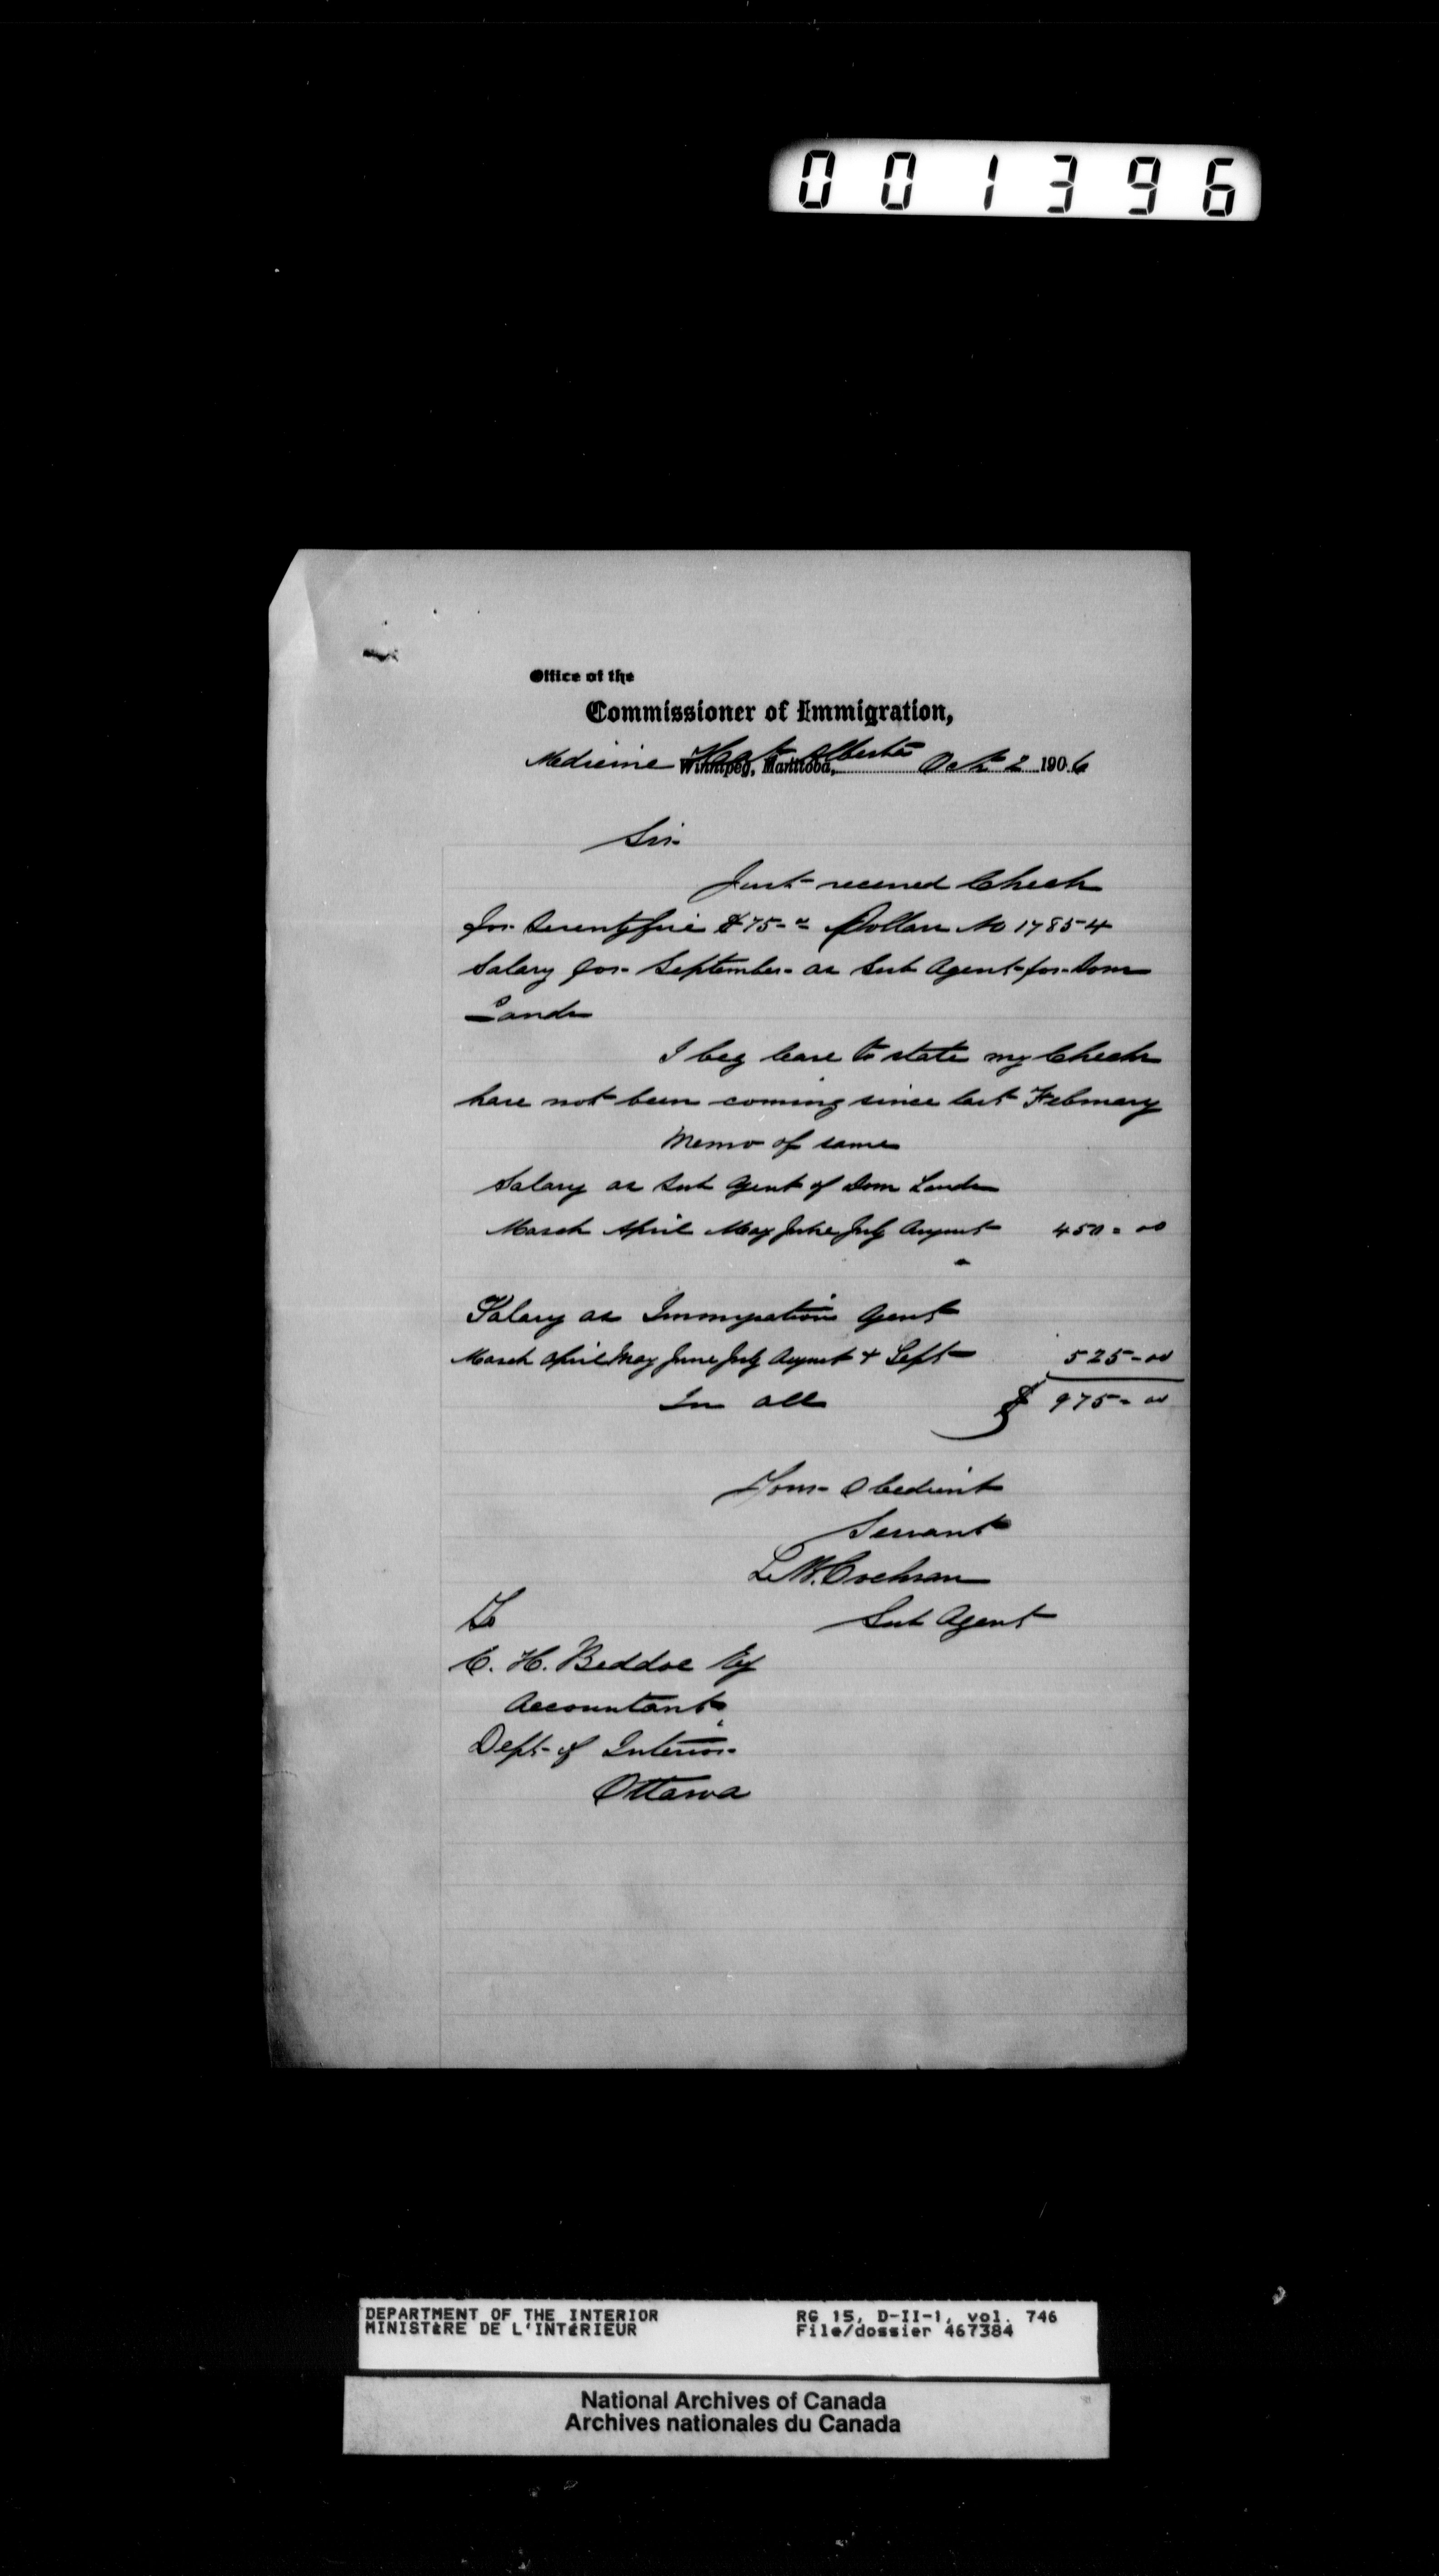 001396
Office of the
Commissioner of Immigration,
Medicine Hat Alberta
Winnipeg, Manitoba, Oct 2 1906
Sir
Just received Check
for Seventyfive $75-00 Dollars No 17854
Salary for September as Sub Agent for Dom
Lands
I beg leave to state my Checks
have not been coming since last February
Memo of same
Salary as Sub Agent of Dom Lands
March April May June July August 450=00
Salary as Immigration Agent
March April May June July August & Sept 525-00
In all $ 975-00
Your Obedient
Servant
L. M. Cochran
Sub Agent
To
C. H. Beddoe Esq
Accountant
Dept of Interior
Ottawa
DEPARTMENT OF THE INTERIOR RG 15, D-II-1, vol. 746
MINISTÈRE DE L'INTÉRIEUR File/dossier 467384
National Archives of Canada
Archives nationales du Canada